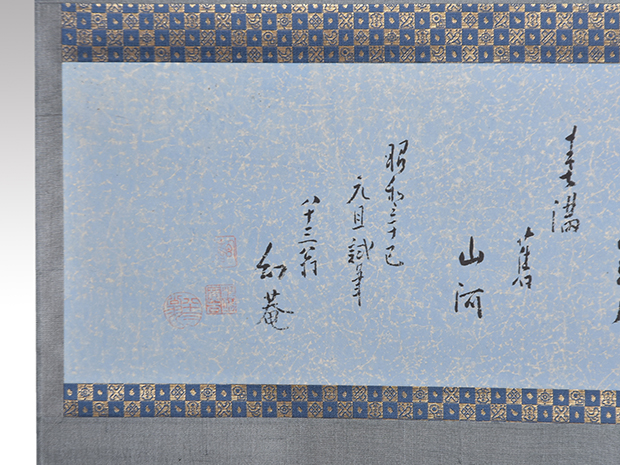 春満
舊
山河
昭和四十巳
元旦試筆
八十三翁
幻菴